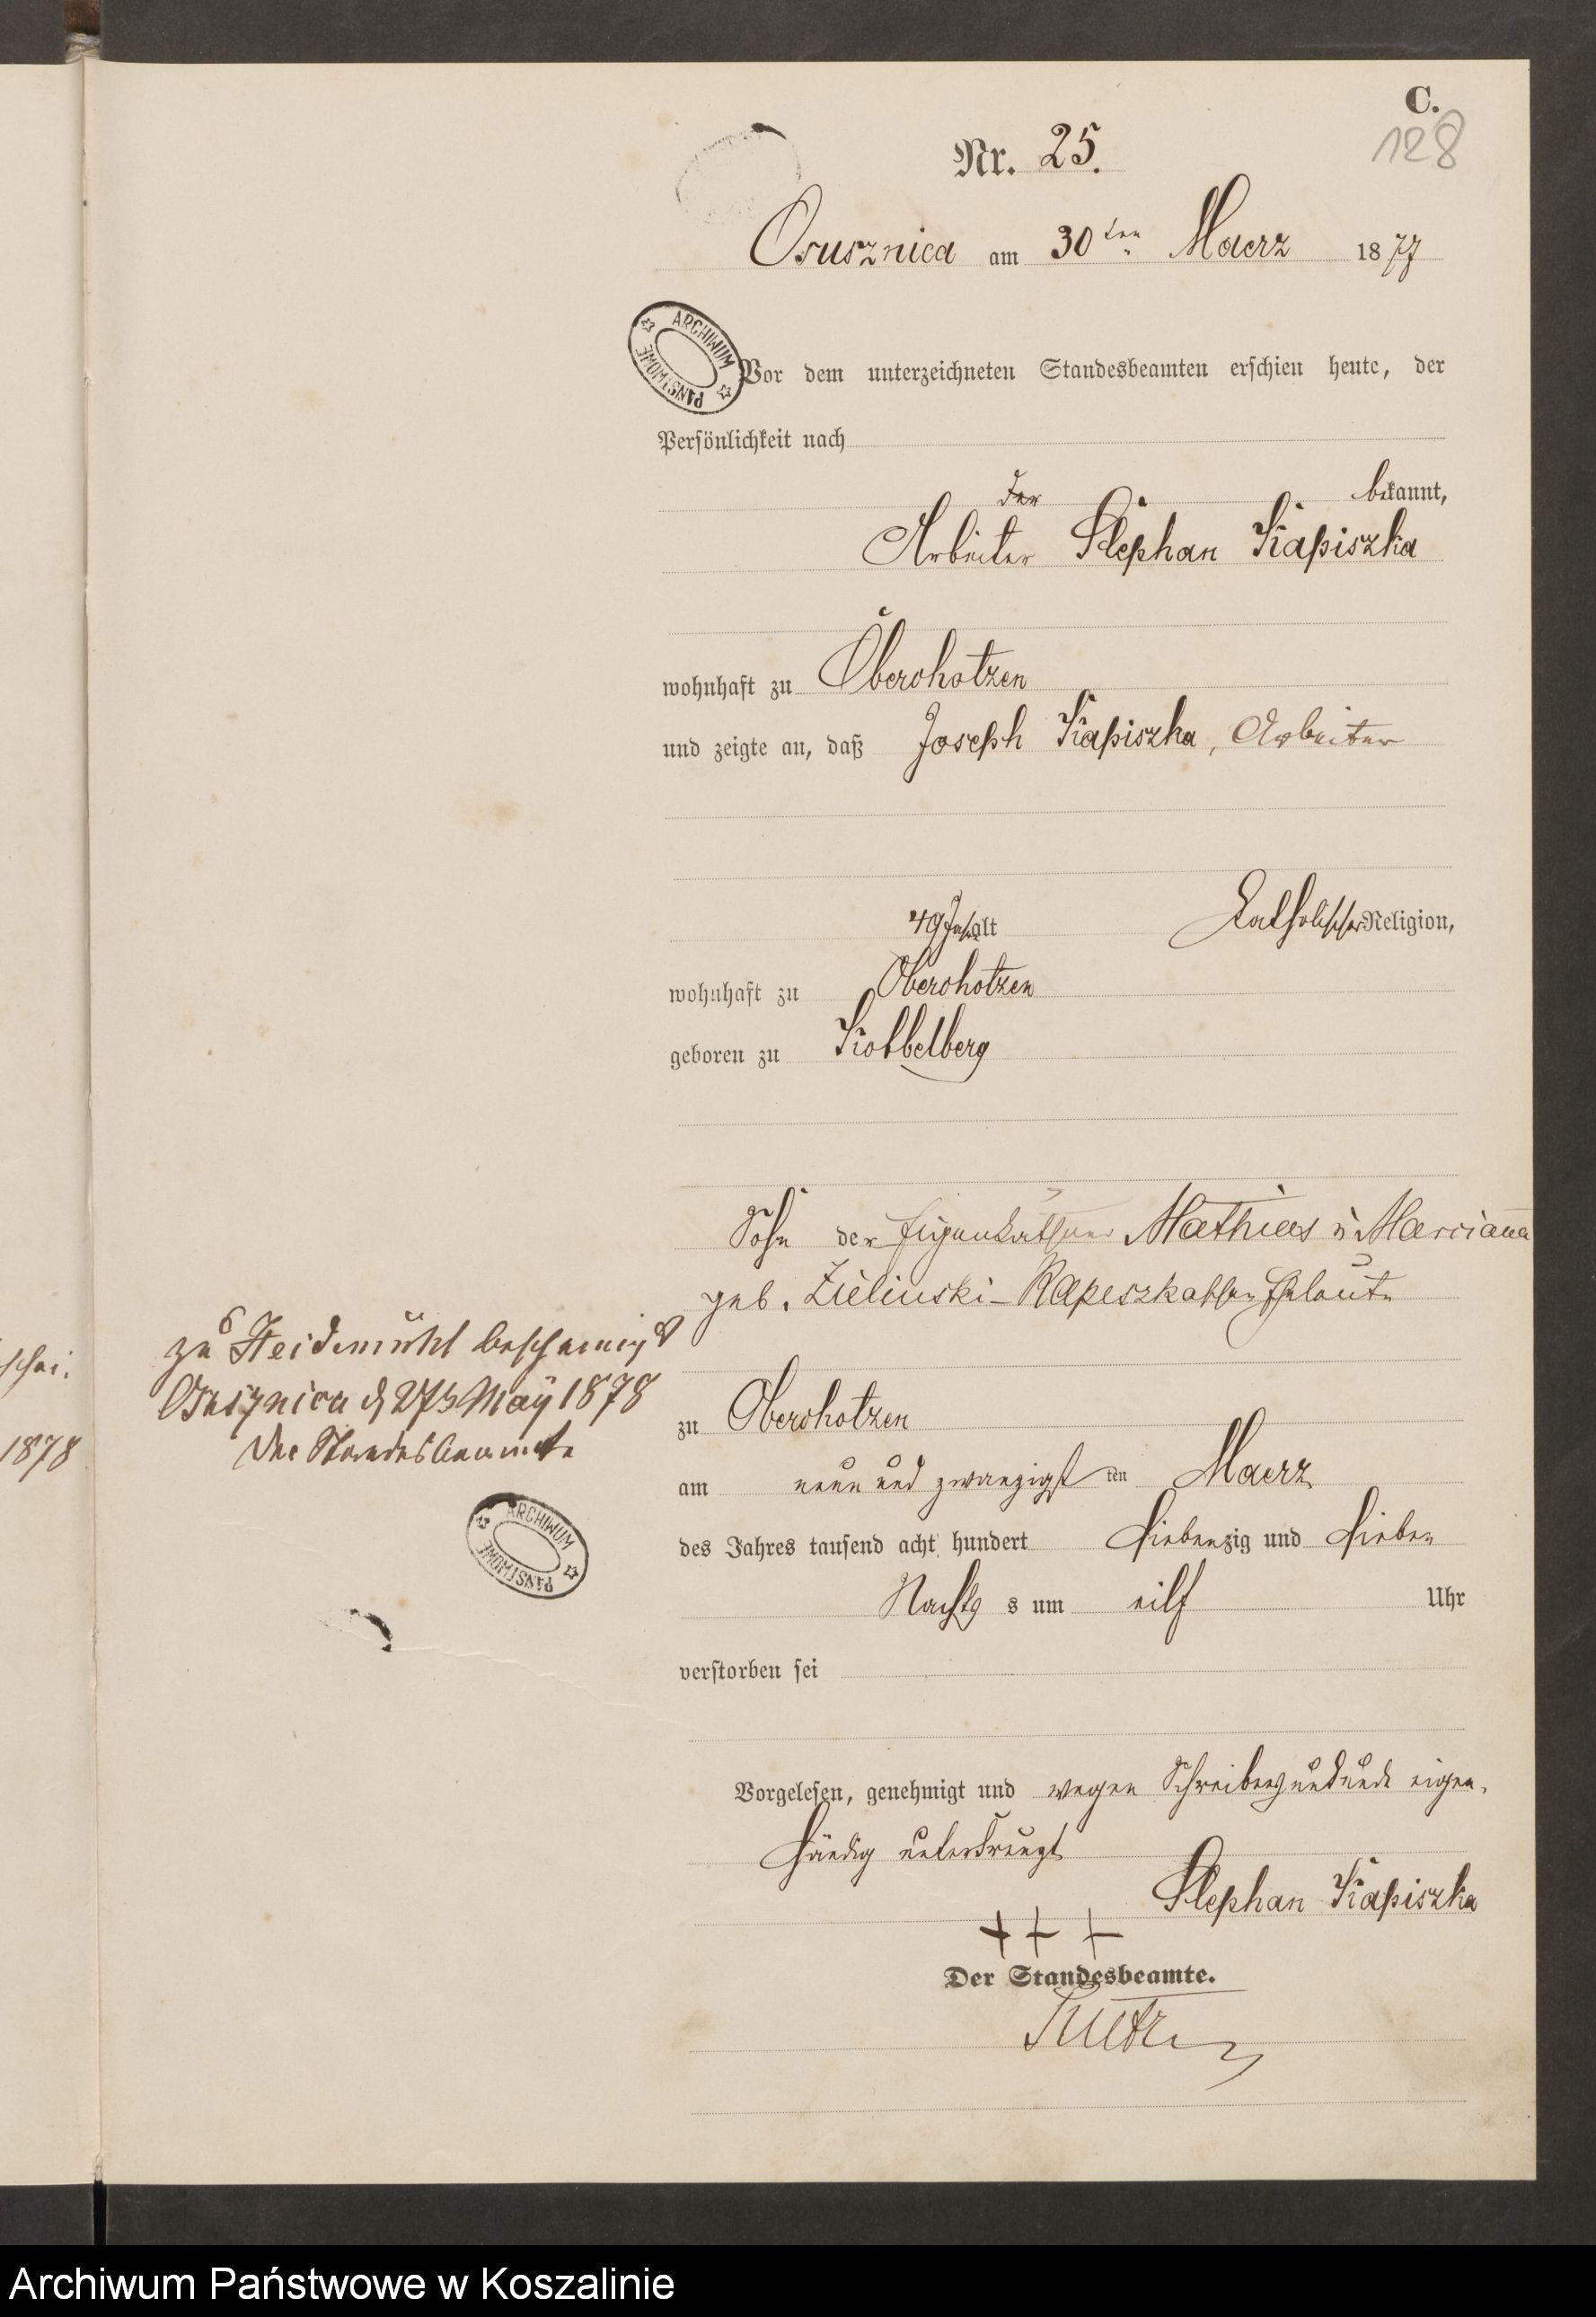 C.
128
Nr. 25.
Osusznica am 30ten Maerz 1877
ARCHIWUM PAŃSTWOWE
Vor dem unterzeichneten Standesbeamten erschien heute, der
Persönlichkeit nach
der bekannt,
Arbeiter Stephan Kapiszka
wohnhaft zu Oberohotzen
und zeigte an, daß Joseph Kapiszka, Arbeiter
49 Jahr alt Katholischer Religion,
wohnhaft zu Oberohotzen
geboren zu
Sohn der Eigenkäthner Mathias u Marianna
geb. Zielinski - Kapeszkaschen Eheleute
zu Oberohotzen
am neun und zwanzigsten Maerz
des Jahres tausend acht hundert siebenzig und sieben
Nachts um eilf Uhr
verstorben sei
Vorgelesen, genehmigt und wegen Schreibensunkunde eigen-
händig unterkreuzt
Stephan Kapiszka
+++
Der Standesbeamte.
schei.
1878
zu Heidemühl bescheinigt
Osusznica d 27 May 1878
Der Standesbeamte
ARCHIWUM PAŃSTWOWE
Archiwum Państwowe w Koszalinie